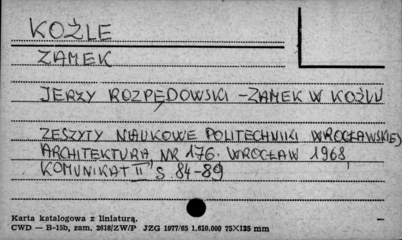 KOŹLE
ZAMEK
JERZY ROZPĘDOWSKI – ZAMEK W KOŹLU
ZESZYTY NAUKOWE POLITECHNIKI WROCŁAWSKIEJ
ARCHITEKTURA, NR 176. WROCŁAW 1968,
KOMUNIKAT II" S 84-89
Karta katalogowa z liniaturą.
CWD — B-15b, zam. 2618/ZW/P JZG 1077/65 1.610.000 75X125 mm